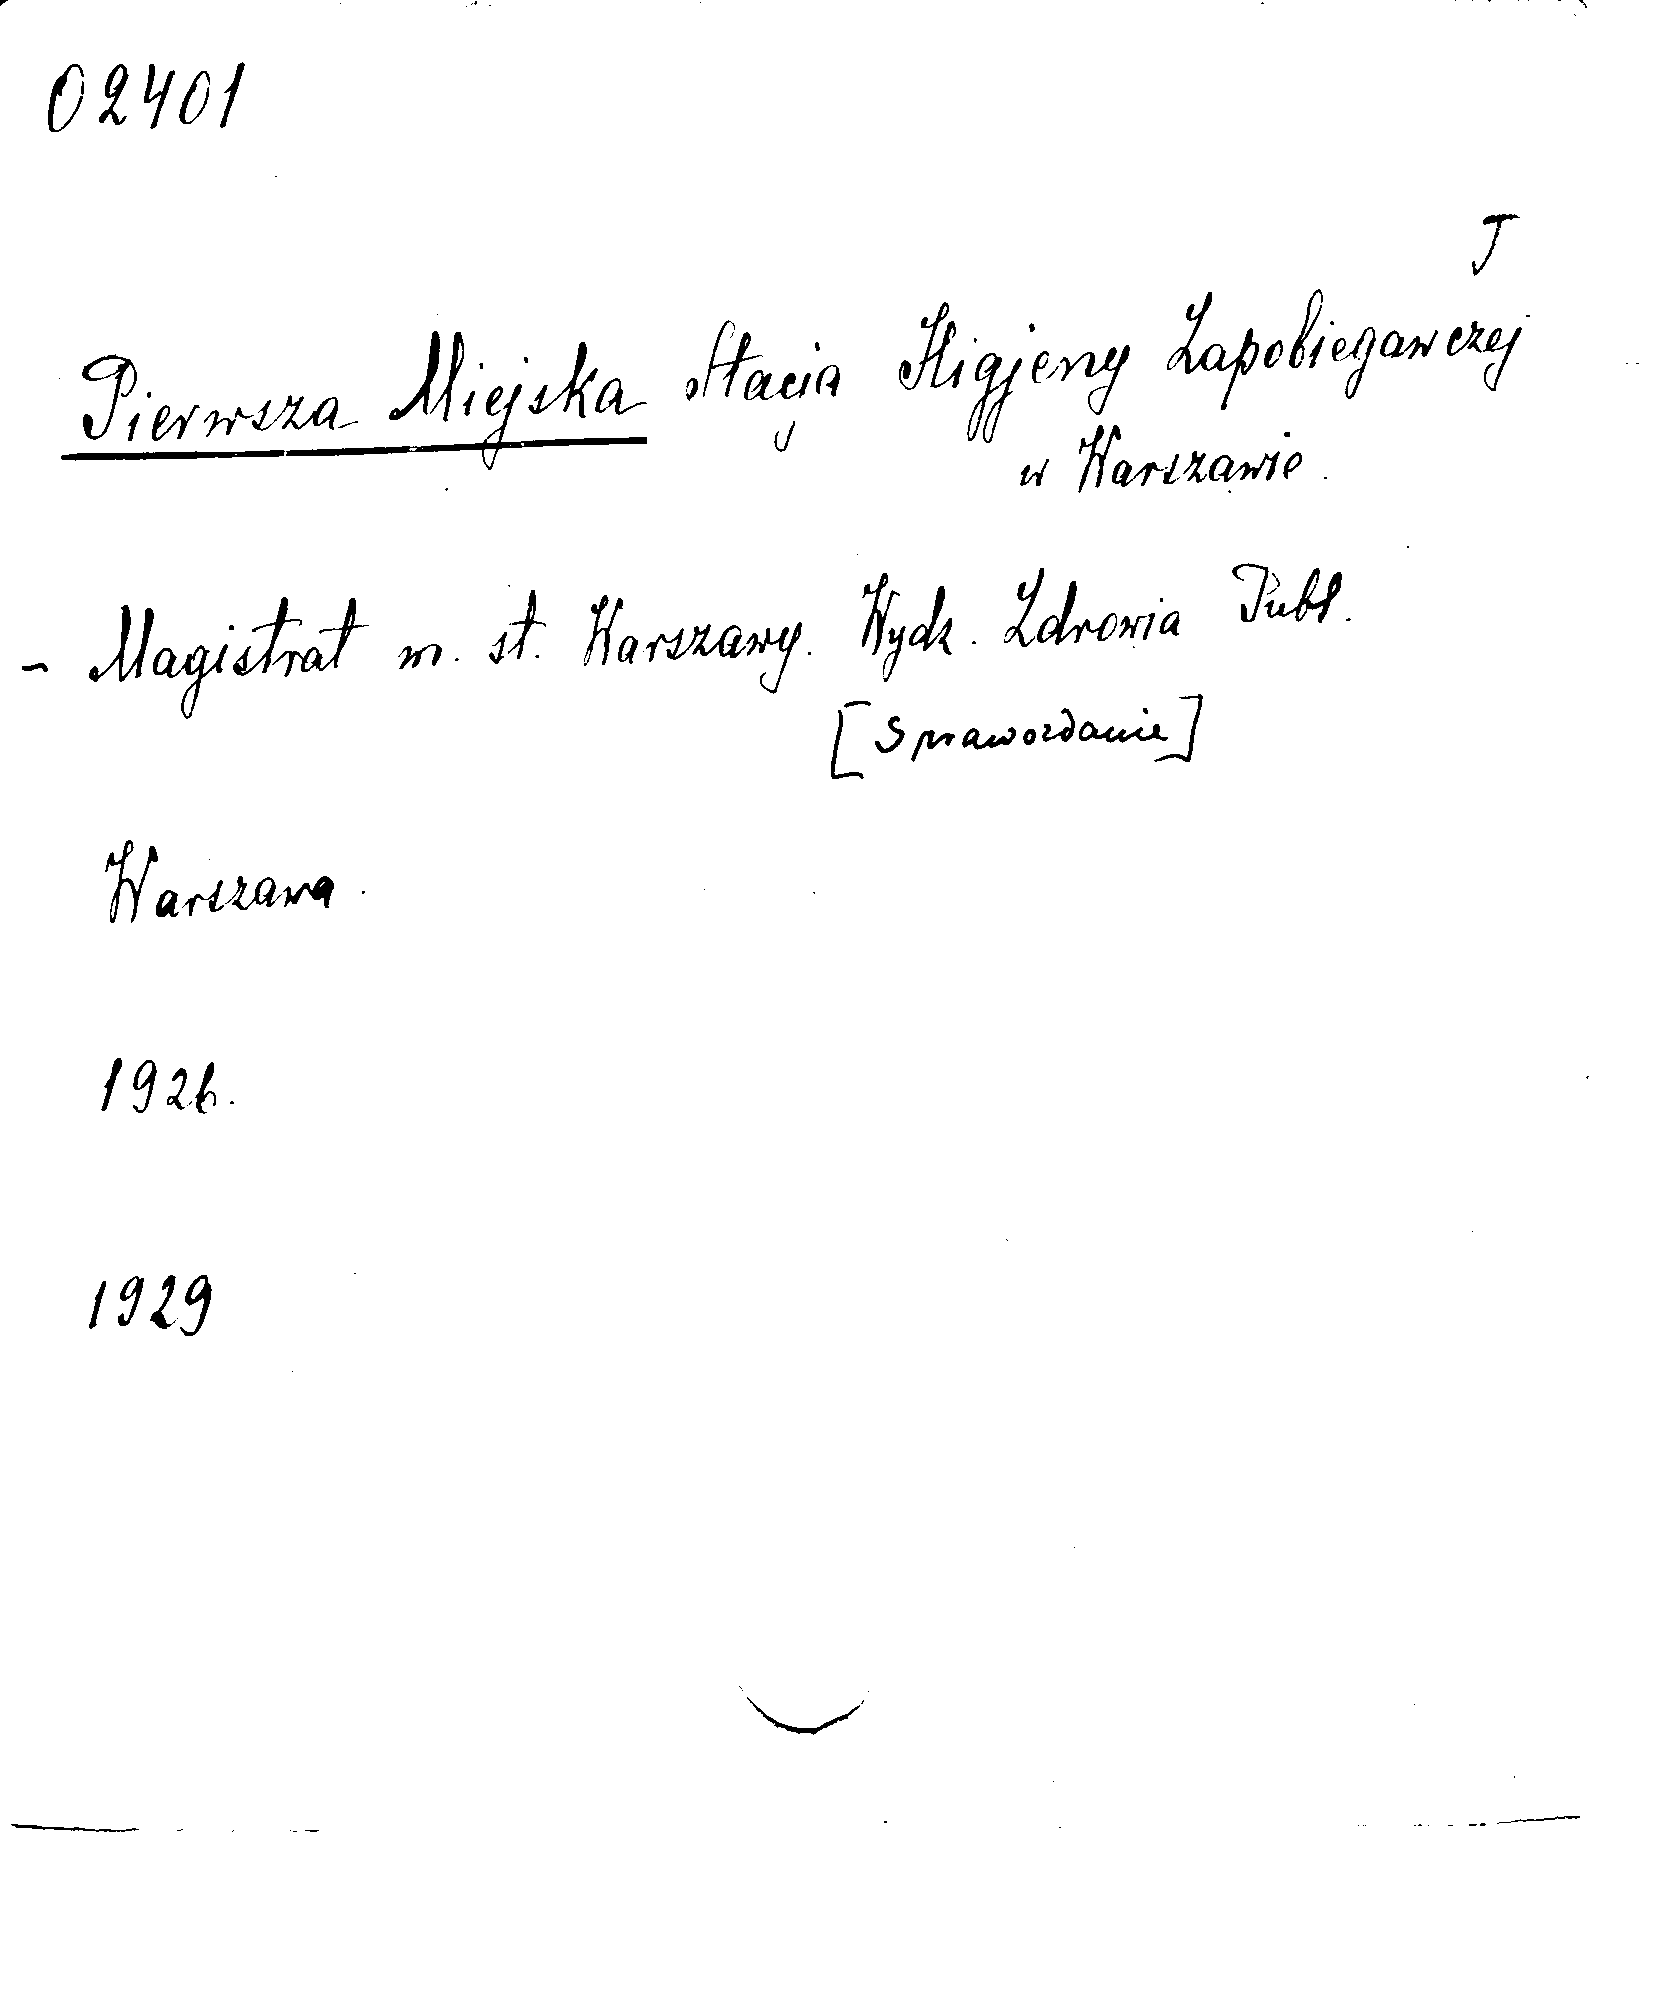 02401
J
Pierwsza Miejska Stacja Higjeny Zapobiegawczej
w Warszawie.
- Magistrat m. st. Warszawy. Wydz. Zdrowia Publ.
[Sprawozdanie]
Warszawa.
1926.
1929